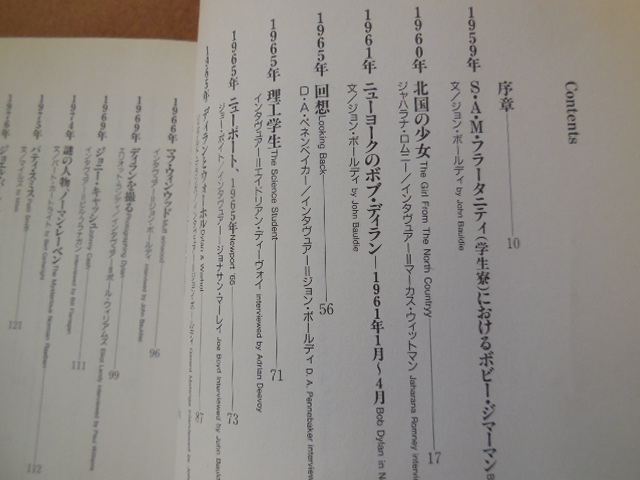 Contents
序章 10
1959年 S・A・M・フラータニティ(学生寮)におけるボビー・ジマーマン
文／ジョン・ボールディ by John Bauldie
1960年 北国の少女 The Girl From The North Countryy 17
ジャハラナ・ロムニー／インタヴュアー＝マーカス・ウィットマン Jaharana Romney interview
1961年 ニューヨークのボブ・ディラン──1961年1月〜4月 Bob Dylan in N
文／ジョン・ボールディ by John Bauldie
1965年 回想 Looking Back 56
D・A・ペネベイカー／インタヴュアー＝ジョン・ボールディ D. A. Pennebaker interview
1965年 理工学生 The Science Student 71
インタヴュアー＝エイドリアン・ディーヴォイ interviewed by Adrian Deevoy
1965年 ニューポート、1965年 Newport '65 73
ジョー・ボイド／インタヴュアー＝ジョナサン・マーレイ Joe Boyd interviewed by
1965年 ディランとウォーホル Dylan & Warhol
1966年 マフ・ウィンウッド Muff Winwood 96
インタヴュアー＝ジョン・ボールディ interviewed by John Bauldie
1969年 ディランを撮る Photographing Dylan 99
エリオット・ランディ／インタヴュアー＝ポール・ウィリアムズ Elliot Landy interviewed by Paul Williams
1969年 ジョニー・キャッシュ Johnny Cash 111
interviewed by Bill Flanagan
1974年 謎の人物／ノーマン・レーベン The Mysterious Norman Raeben 112
1975年 パティ・スミス Patti Smith 121